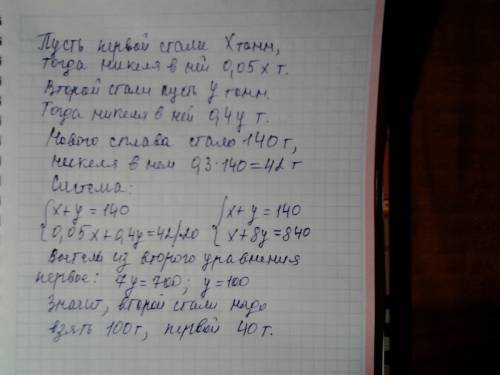 Пусть первой стали X тонн,
тогда никеля в ней 0,05x т.
Второй стали пусть y тонн.
Тогда никеля в ней 0,4y т.
Нового сплава стало 140 т,
никеля в нем 0,3·140=42 т
Система:
{x+y=140 {x+y=140
{0,05x+0,4y=42/·20 {x+8y=840
Вычтем из второго уравнения
первое: 7y=700; y=100
Значит, второй стали надо
взять 100 т, первой 40 т.